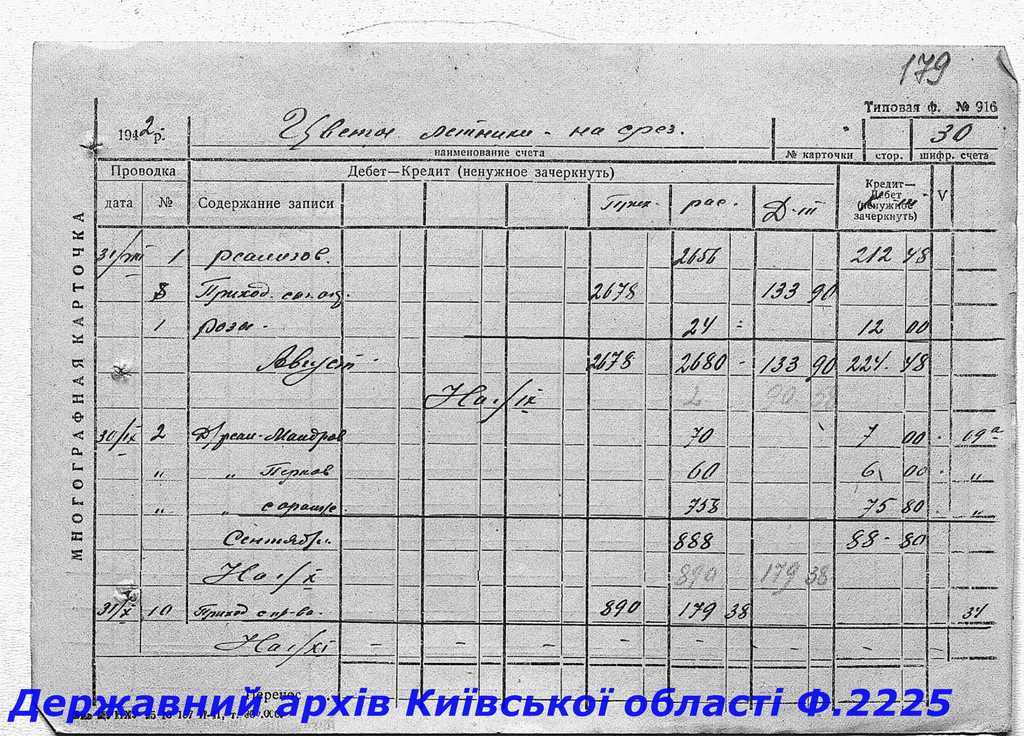 179
Типовая ф. № 916
1942 р. Цветы летники - на срез. 30
наименование счета № карточки стор. шифр. счета
Проводка Дебет—Кредит (ненужное зачеркнуть) Кредит—Дебет (ненужное зачеркнуть) V
дата № Содержание записи Прих. рас. Д-т
МНОГОГРАФНАЯ КАРТОЧКА
31/VIII 1 реализов. 2656 212 48
8 Приход. 2678 133 90
1 розы - 24 = 12 00
Август - 2678 2680 - 133 90 224. 48
На 1/IX 2
30/IX 2 70 7 00 19а
" " 60 6 00 "
" " 758 75 80 "
Сентябрь 888 88 - 80
На 1/X 890 179 38
31/X 10 Приход 890 179 38 31
На 1/XI - - - - -
Перенос
Державний архів Київської області Ф.2225